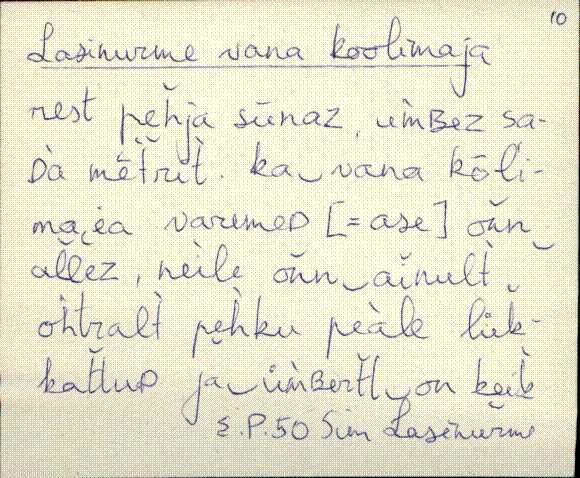 10
Lasinurme vana koolimaja
rest pe̮h́ja sūnaz, üm̀ʙez sa-
ᴅà mēt̆rit̀. ka‿vana kōĺi-
maɪ̯ea varemeᴅ [= ase] on̆n‿
al̆lez, neile on̆n‿ai̯nult̀‿
oh̀tralt̀ pe̮h̀ku peàle lük-
kat̆tuᴅ ja‿üm̀ʙert̆t‿on ke̮ik̀
E.P.50 Sim Lasinurm